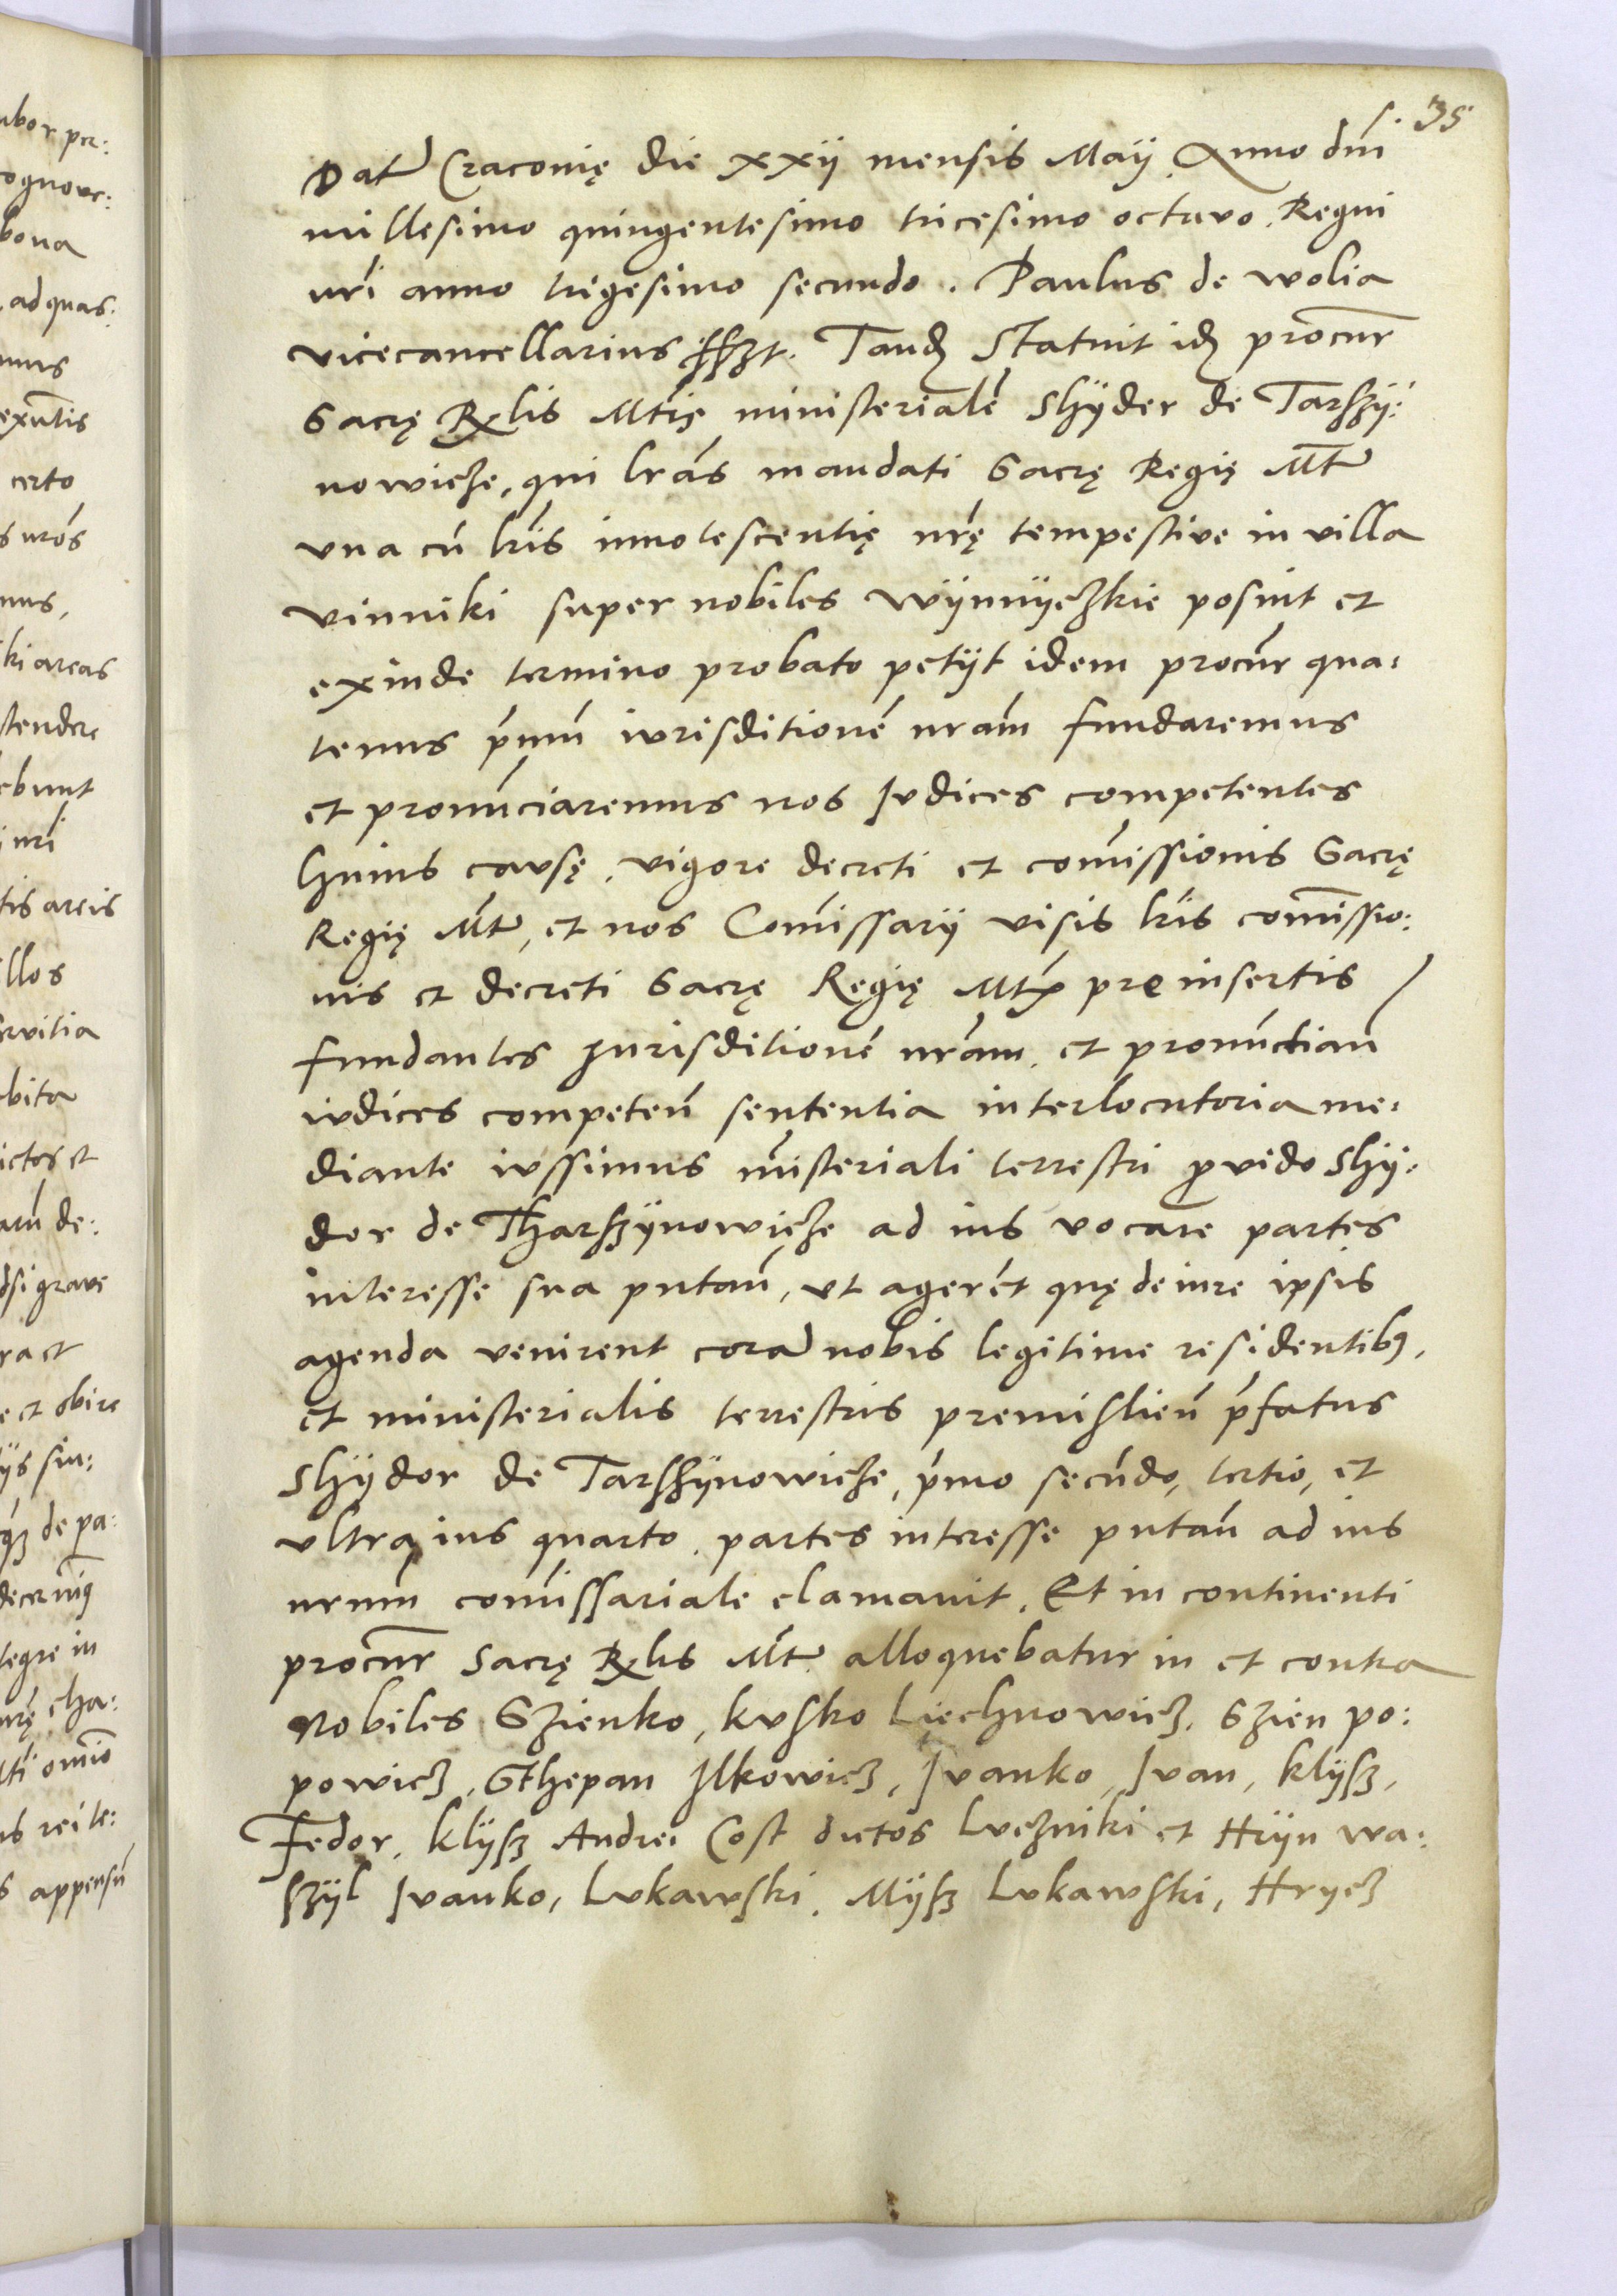 35
Dat̄ Cracovię die xxij mensis Maij Anno dn̄i
millesimo quingentesimo tricesimo octavo. Regni
nr̄i anno trigesimo secundo. Paulus de wolia
vicecancellarius sszt. Tandꝫ Statuit idꝫ procur̄
Sacrę Rx̄lis Mt̄is ministerialē Shÿder de Tarsszÿ:
nowicze, qui lrās mandati Sacrę Regię Mt̄
vna cū lr̄is innotescentię nr̄ę tempestive in villa
vinniki super nobiles wÿnnÿczkie posuit et
exinde termino probato petijt idem procur̄ qua:
tenus p̄mū iurisditionē nrām fundaremus
et pronūciaremus nos Judices competentes
huius causę, vigore decreti et com̄issionis Sacrę
Regię Mt̄, et nos Com̄issarij visis lr̄is com̄issio:
nis et decreti Sacrę Regię Mt̄ preinsertis
fundantes Jurisditionē nrām. et pronūctian̄
iudices competen̄ sententia interlocutoria me:
diante iussimus mīsteriali terrestri ꝓvido Shÿ:
dor de Tharszÿnowicze ad ius vocare partes
interesse sua putan̄, ut agerēt quę de iure ipsis
agenda venirent corā nobis legitime residentibꝫ,
et ministerialis terrestris premislien̄ p̄fatus
Shÿdor de Tarsszÿnowicze, p̄mo secūdo, tertio, et
vltra ius quarto. partes interesse putan̄ ad ius
nrum̄ com̄issariale clamavit. Et in continenti
procur̄ Sacrę Rx̄lis Mt̄ alloquebatur in et contra
Nobiles Szienko, kusko Liechnowicz, Szien po:
powicz, Sthepan Jlkowicz, Jvanko, Jvan, klÿsz,
Fedor, klÿsz Andrei Cost dictos Luczniki et Hrÿn wa:
szÿl Jvanko, Lukawski, Mÿsz Lukawski, Hrycz